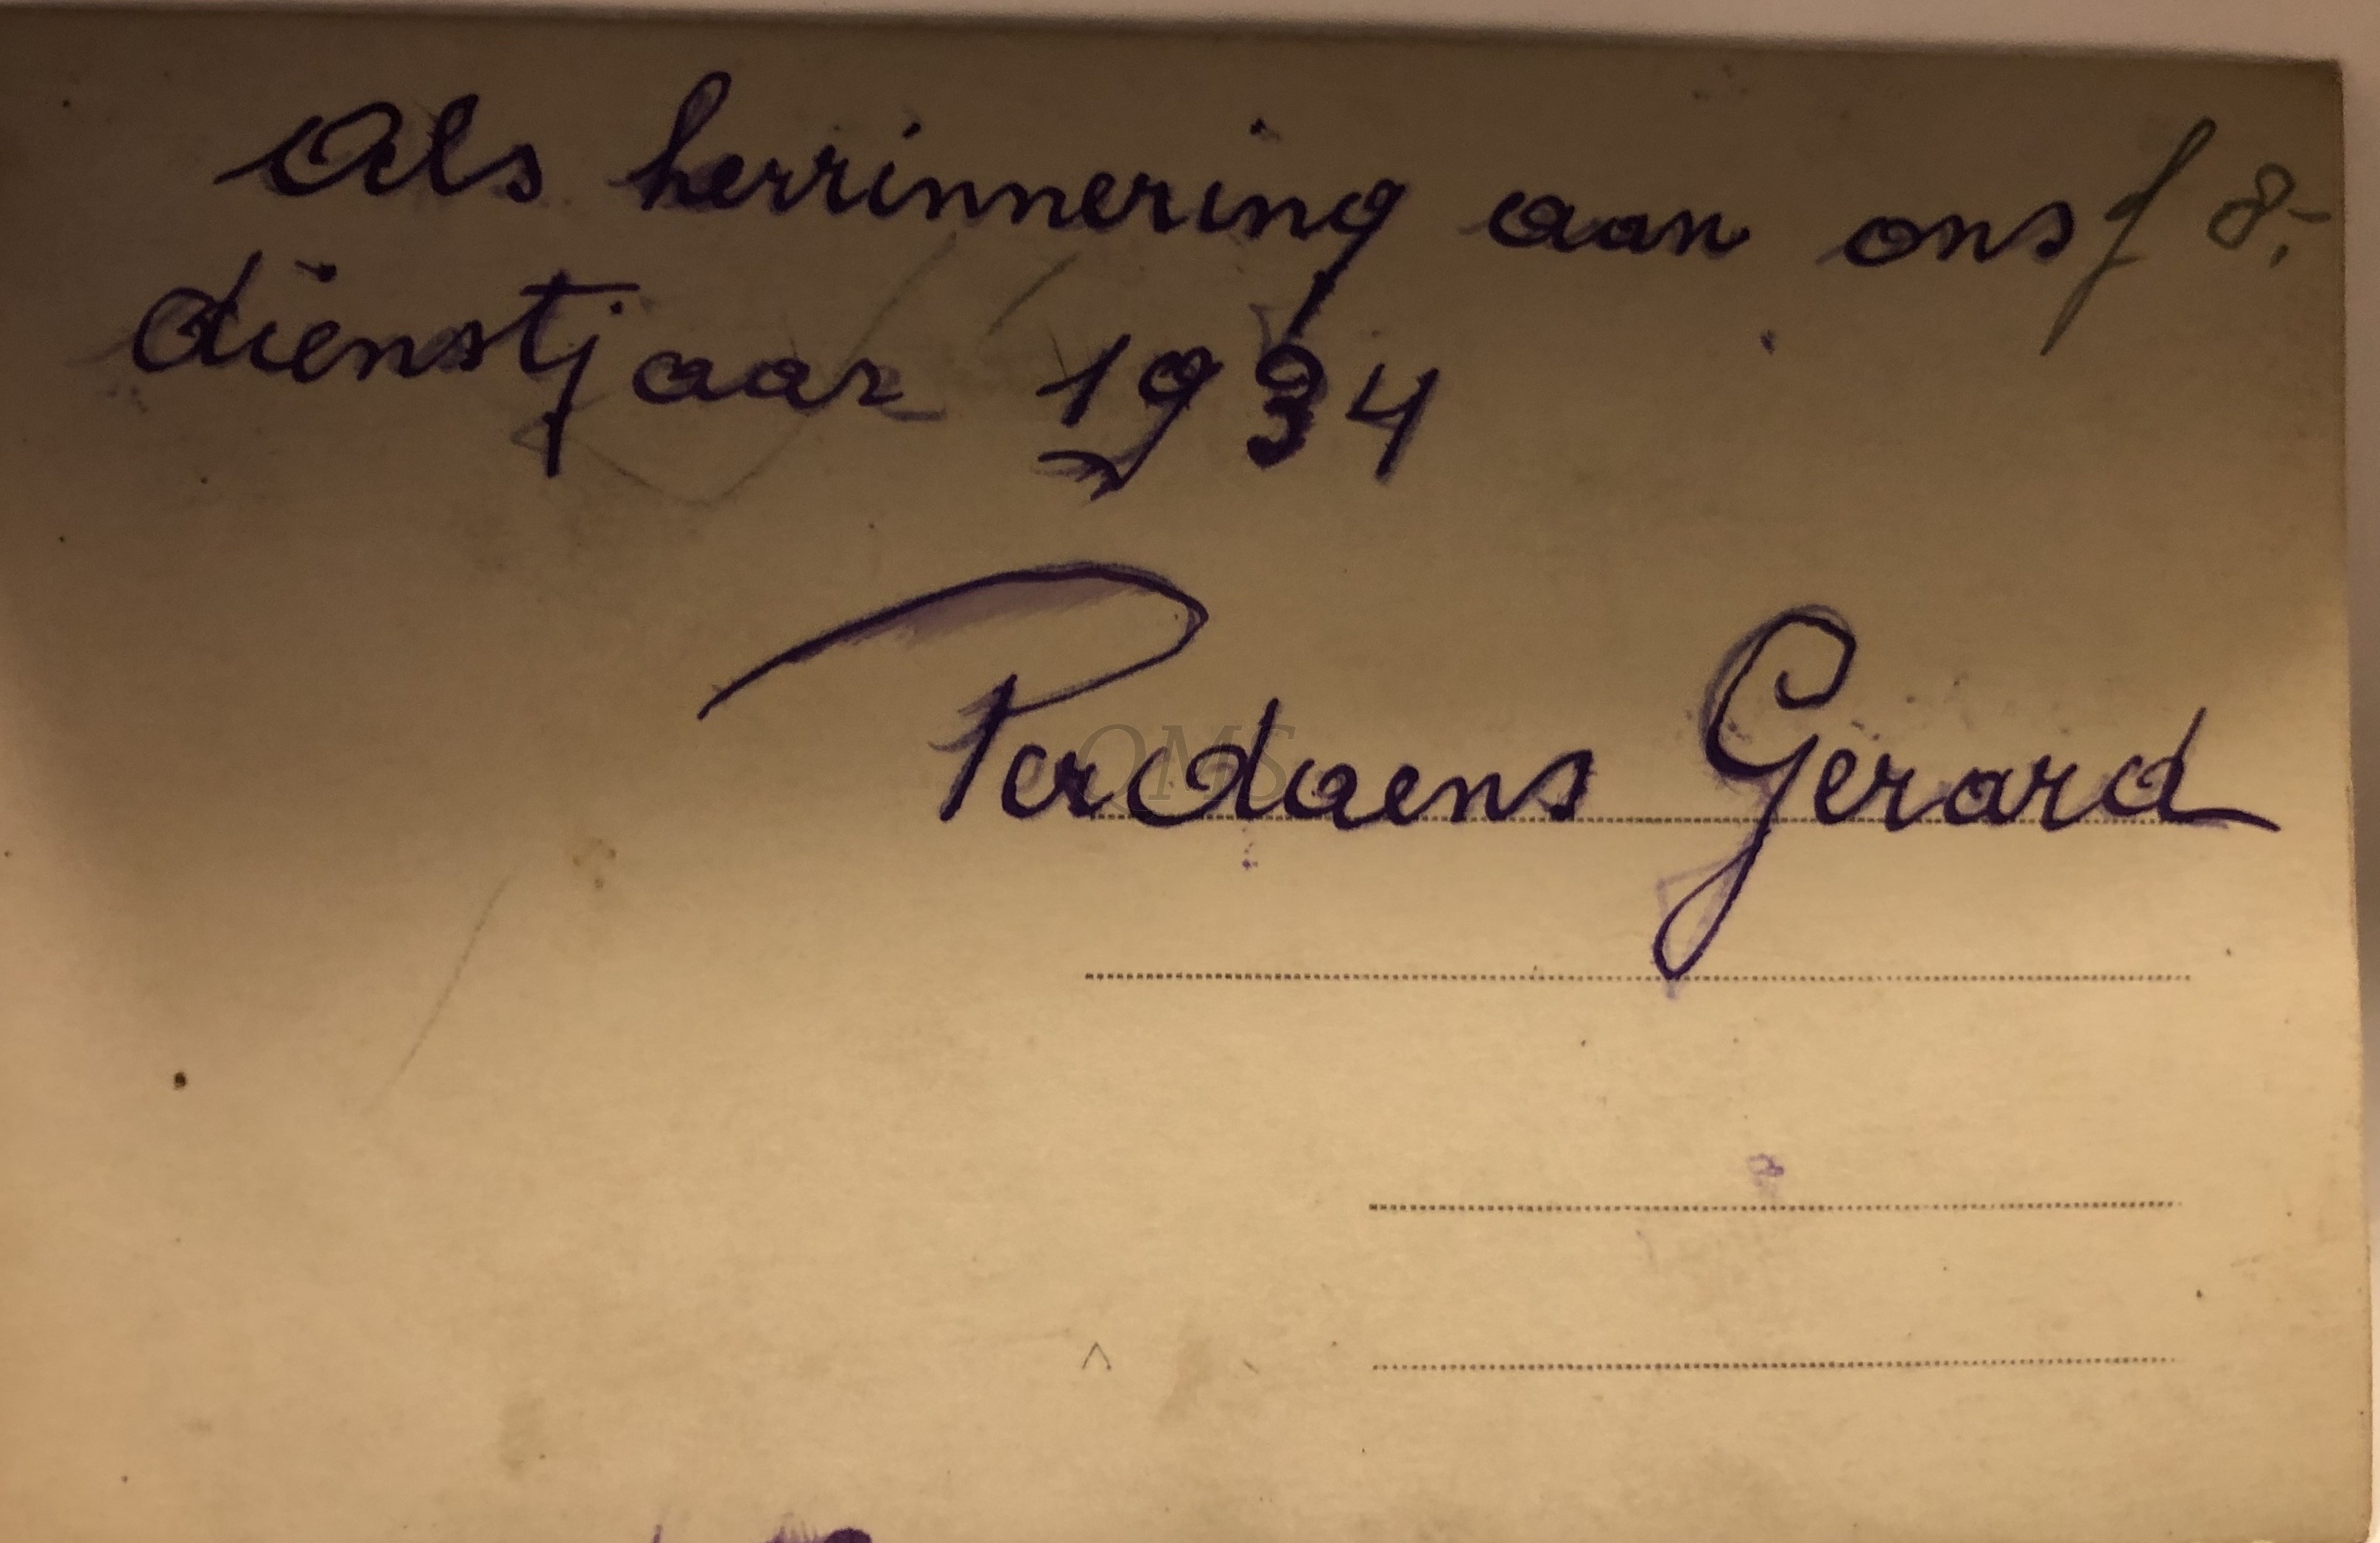 Als herrinnering aan ons f 8,-
dienstjaar 1934
Perdaens Gerard
QMS